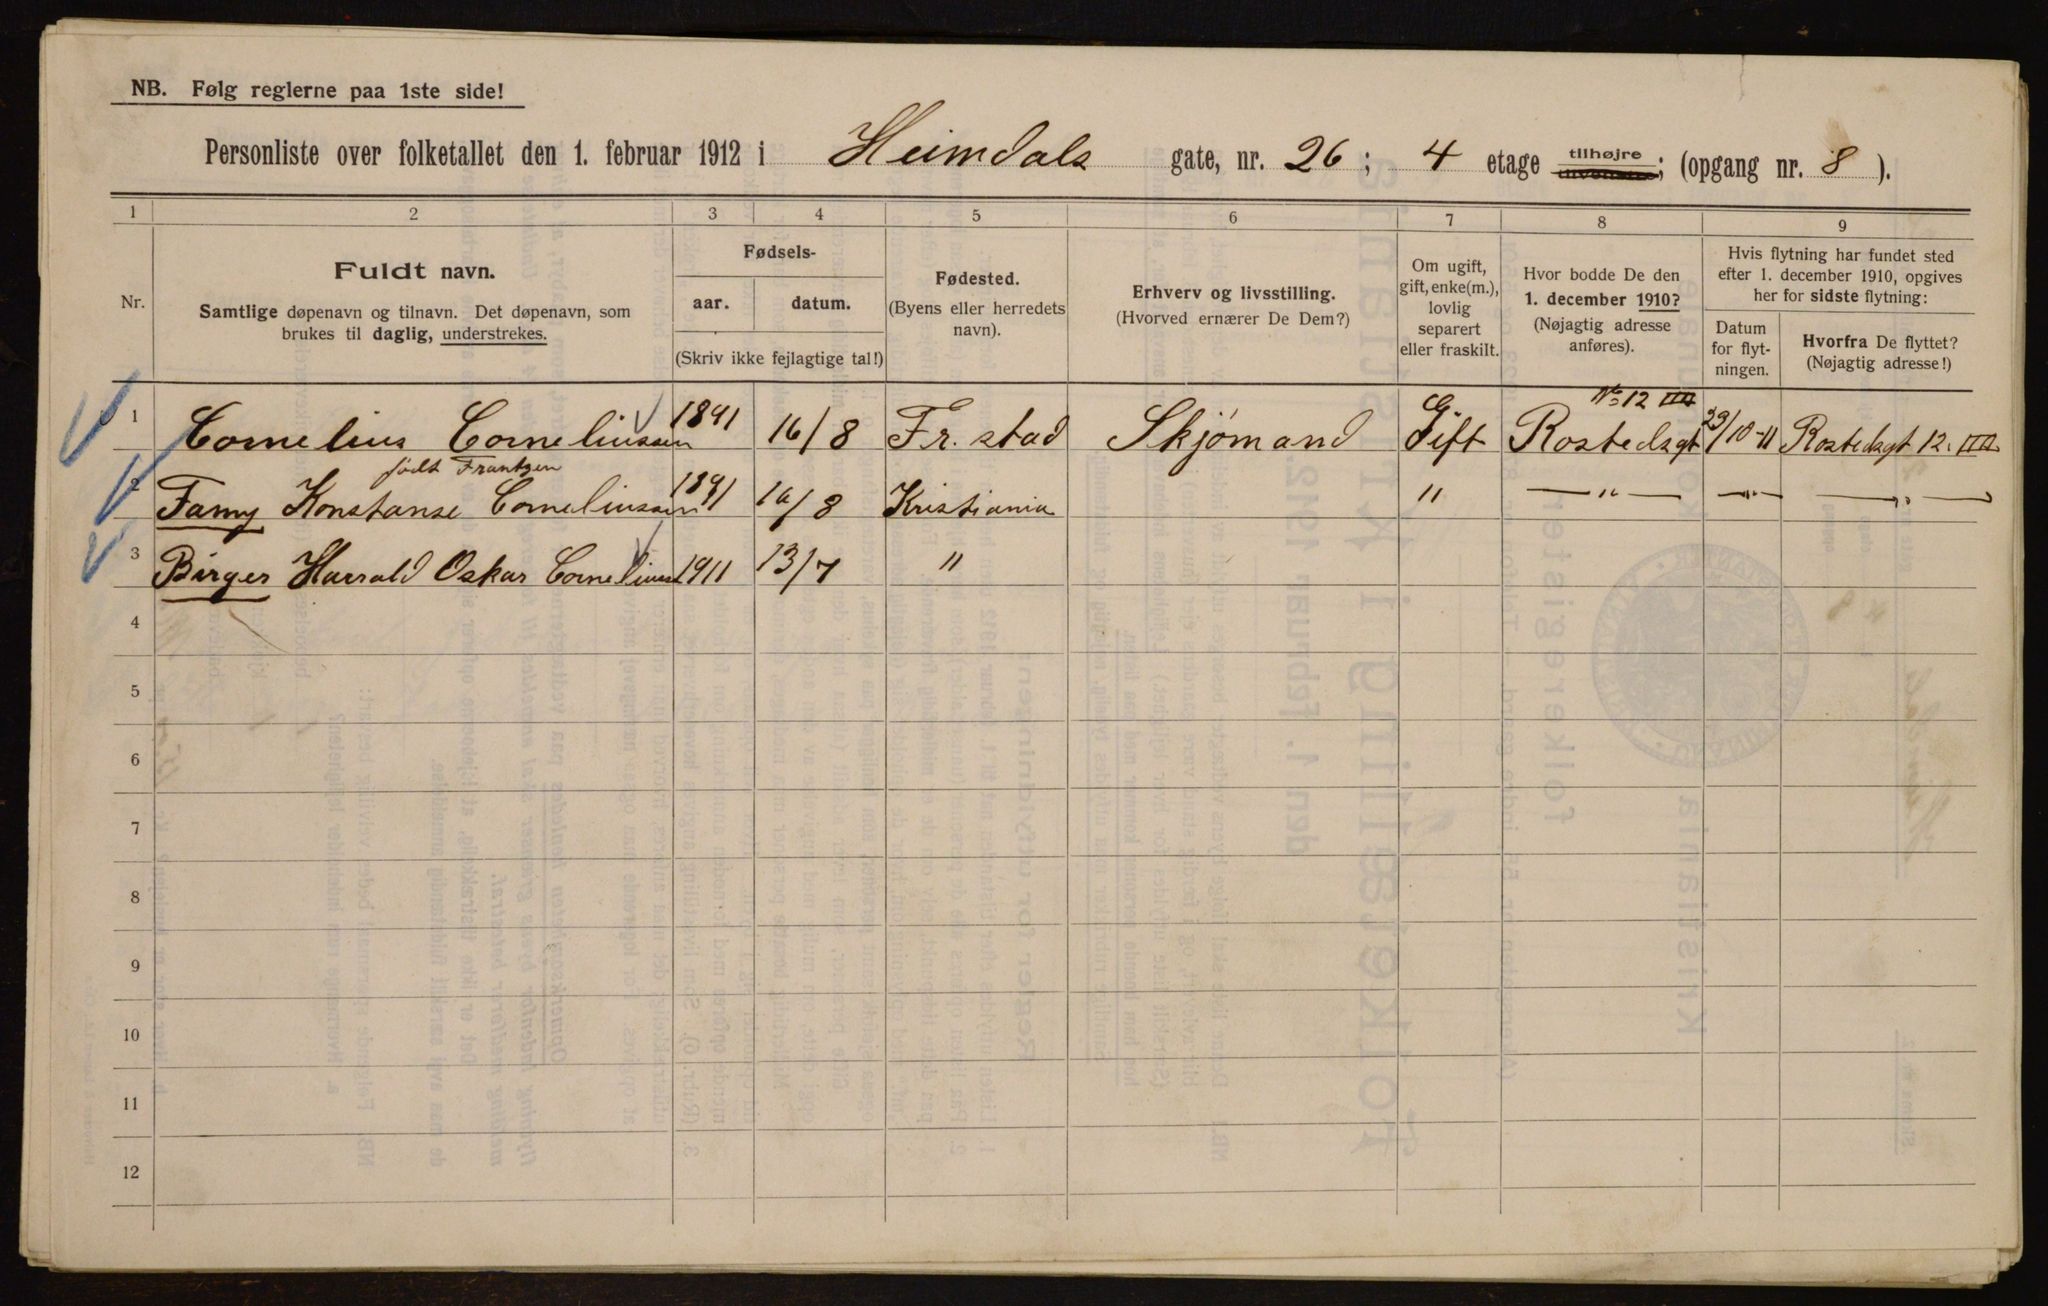 NB. Følg reglerne paa 1ste side!
Personliste over folketallet den 1. februar 1912 i Heimdals gate, nr. 26; 4 etage tilhøjre; (opgang nr. 8).
1 2 3 4 5 6 7 8 9
Nr.
Fuldt navn.
Samtlige døpenavn og tilnavn. Det døpenavn, som
brukes til daglig, understrekes.
Fødsels-
aar. datum.
(Skriv ikke fejlagtige tal!)
Fødested.
(Byens eller herredets
navn).
Erhverv og livsstilling.
(Hvorved ernærer De Dem?)
Om ugift,
gift, enke(m.),
lovlig
separert
eller fraskilt.
Hvor bodde De den
1. december 1910?
(Nøjagtig adresse
anføres).
Hvis flytning har fundet sted
efter 1. december 1910, opgives
her for sidste flytning:
Datum
for flyt-
ningen.
Hvorfra De flyttet?
(Nøjagtig adresse!)
No 12 IIII
1 Cornelius Corneliussen 1891 16/8 Fr.stad Skjømand Gift Rostedsgt /10-11 Rostedsgt 12. IIII
født Frantzen
2 Fanny Konstanse Corneliussen 1891 /8 Kristiania " — " — — " — — " —
3 Birger Harrald Oskar Cornelius 1911 13/7 "
4
5
6
7
8
9
10
11
12